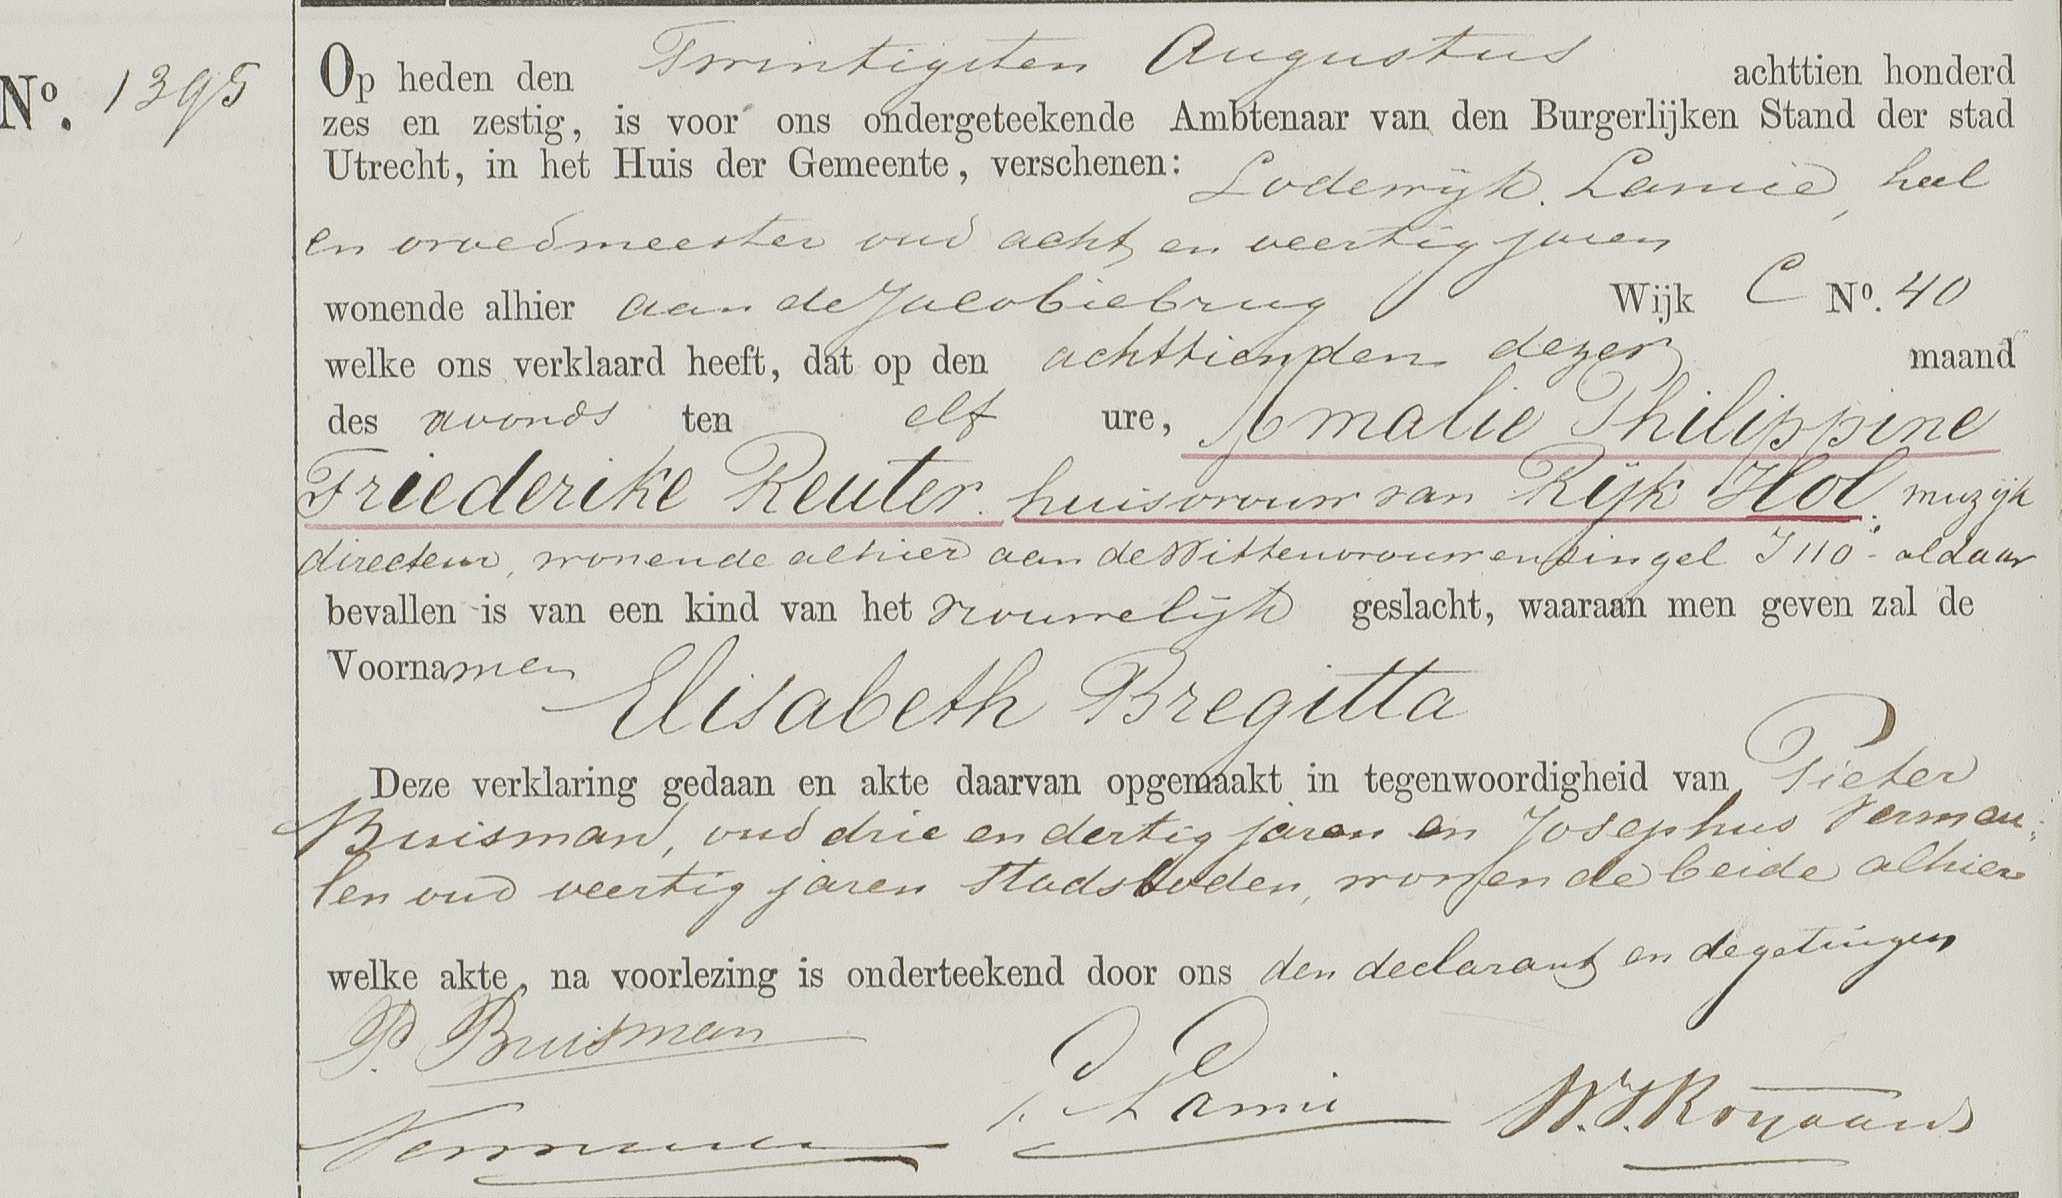 No. 1395
Op heden den Twintigsten Augustus achttien honderd
zes en zestig, is voor ons ondergeteekende Ambtenaar van den Burgerlijken Stand der stad
Utrecht, in het Huis der Gemeente, verschenen: Lodewijk Lamie, heel
en vroedmeester oud acht en veertig jaren
wonende alhier aan de Jacobiebrug Wijk C No. 40
welke ons verklaard heeft, dat op den achttienden dezer maand
des avonds ten elf ure, Amalie Philippine
Friederike Reuter huisvrouw van Rijk Hol, muzijk
directeur, wonende alhier aan de Wittevrouwensingel I 110 - aldaar
bevallen is van een kind van het vrouwelijk geslacht, waaraan men geven zal de
Voornamen Elisabeth Bregitta
Deze verklaring gedaan en akte daarvan opgemaakt in tegenwoordigheid van Pieter
Buisman, oud drie en dertig jaren en Josephus Vermeu-
len oud veertig jaren stadsboden, wonende beide alhier
welke akte, na voorlezing is onderteekend door ons den declarant en de getuigen
P. Buisman
L. Lamie
W. J. Royaards
Vermeulen